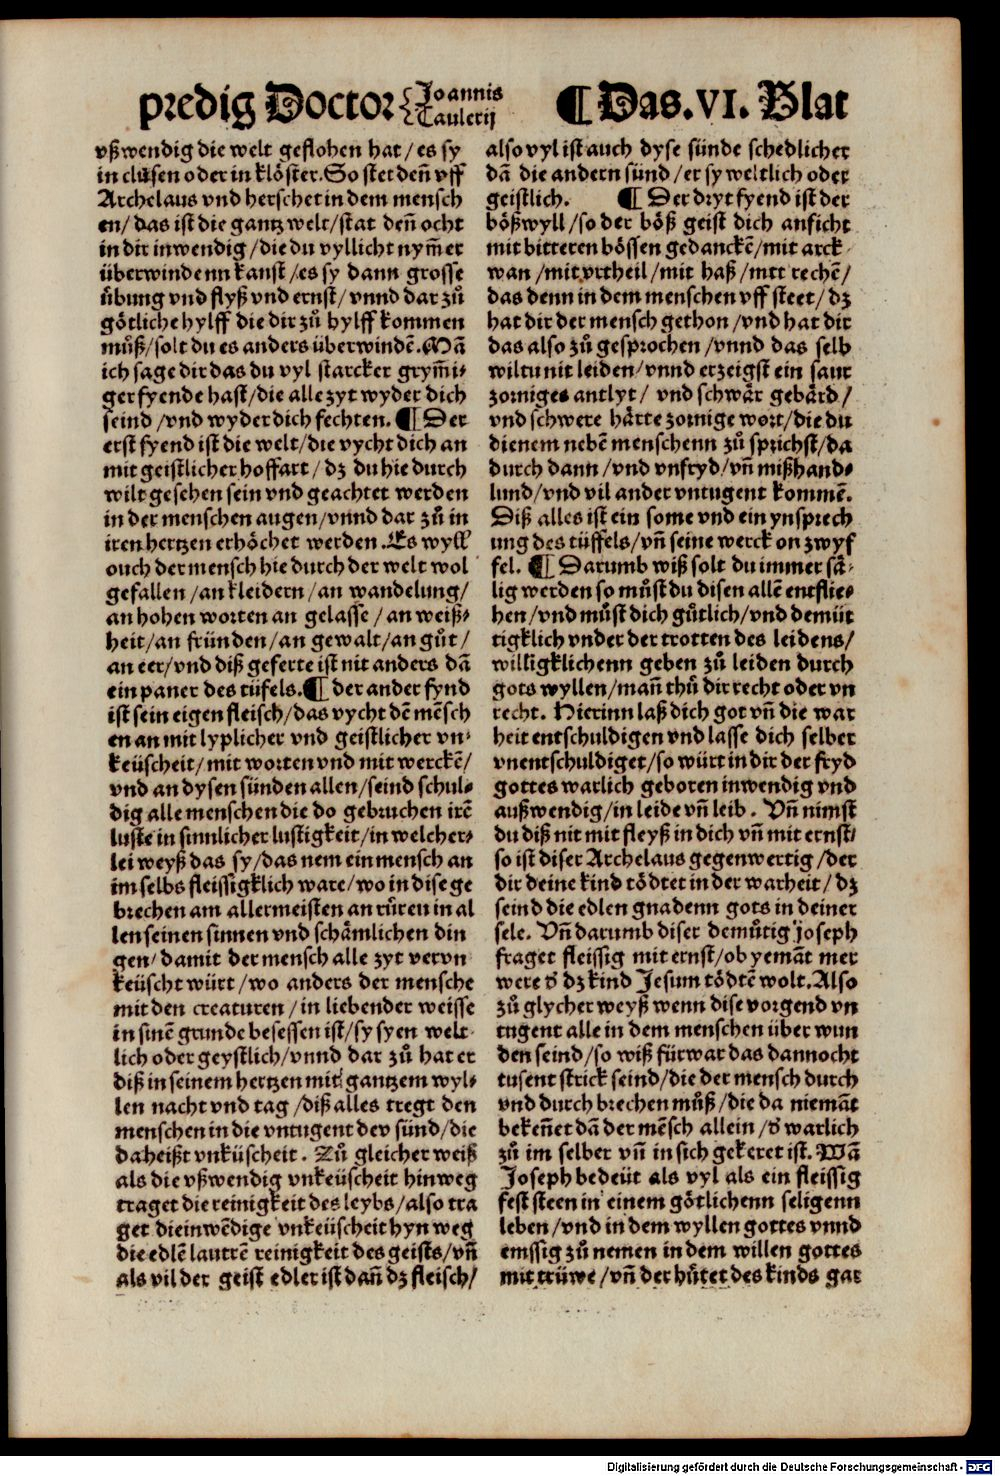 predig Doctor {Joannis Taulerij ¶ Das. VI. Blat
vßwendig die welt geflohen hat / es sy
in clusen oder in klöster. So stet deñ vff
Archelaus vnd herschet in dem mensch
en / das ist die gantz welt / stat deñ ocht
in dir inwendig / die du vyllicht nym̃er
überwindenn kanst / es sy dann grosse
übung vnd flyß vnd ernst / vnnd dar zů
götliche hylff die dir zů hylff kommen
můß / solt du es anders überwindē. Wā
ich sage dir das du vyl starcker grym̃i-
ger fyende hast / die alle zyt wyder dich
seind / vnd wyder dich fechten. ¶ Der
erst fyend ist die welt / die vycht dich an
mit geistlicher hoffart / dz du hie durch
wilt gesehen sein vnd geachtet werden
in der menschen augen / vnnd dar zů in
iren hertzen erhöchet werden. Es wyll
ouch der mensch hie durch der welt wol
gefallen / an kleidern / an wandelung /
an hohen worten an gelasse / an weiß-
heit / an fründen / an gewalt / an gůt /
an eer / vnd diß geferte ist nit anders dā
ein paner des tüfels. ¶ der ander fynd
ist sein eigen fleisch / das vycht dē mēsch
en an mit lyplicher vnd geistlicher vn-
keüscheit / mit worten vnd mit werckē /
vnd an dysen sünden allen / seind schul-
dig alle menschen die do gebruchen irē
luste in sinnlicher lustigkeit / in welcher-
lei weyß das sy / das nem ein mensch an
im selbs fleissigklich ware / wo in dise ge
brechen am allermeisten an rüren in al
len seinen sinnen vnd schämlichen din
gen / damit der mensch alle zyt vervn
keüscht würt / wo anders der mensche
mit den creaturen / in liebender weisse
in sinē grunde besessen ist / sy syen welt-
lich oder geystlich / vnnd dar zů hat er
diß in seinem hertzen mit gantzem wyl-
len nacht vnd tag / diß alles tregt den
menschen in die vntugent der sünd / die
da heißt vnküscheit. Zů gleicher weiß
als die vßwendig vnkeüscheit hinweg
traget die reinigkeit des leybs / also tra
get die inwēdige vnkeüscheit hyn weg
die edlē lautrē reinigkeit des geists / vñ
als vil der geist edler ist dañ dz fleisch /
also vyl ist auch dyse sünde schedlicher
dā die andern sünd / er sy weltlich oder
geistlich. ¶ Der dryt fyend ist der
bößwyll / so der böß geist dich anficht
mit bitteren bössen gedanckē / mit arck-
wan / mit vrtheil / mit haß / mit rechē /
das denn in dem menschen vff steet / dz
hat dir der mensch gethon / vnd hat dir
das also zů gesprochen / vnnd das selb
wiltu nit leiden / vnnd erzeigst ein saur
zorniges antlyt / vnd schwär gebärd /
vnd schwere härte zornige wort / die du
dienem nebē menschenn zů sprichst / da
durch dann / vnd vnfryd / vñ mißhand-
lund / vnd vil ander vntugent kommē.
Diß alles ist ein some vnd ein ynsprech
ung des tüffels / vñ seine werck on zwyf
fel. ¶ Darumb wiß solt du immer sä-
lig werden so můst du disen allē entflie-
hen / vnd můst dich gůtlich / vnd demüt
tigklich vnder der trotten des leidens /
willigklichenn geben zů leiden durch
gots wyllen / mañ thů dir recht oder vn
recht. Hierinn laß dich got vñ die war
heit entschuldigen vnd lasse dich selber
vnentschuldiget / so würt in dir der fryd
gottes warlich geboren inwendig vnd
außwendig / in leide vñ leib. Vñ nimst
du diß nit mit fleyß in dich vñ mit ernst /
so ist diser Archelaus gegenwertig / der
dir deine kind tödtet in der warheit / dz
seind die edlen gnadenn gots in deiner
sele. Vñ darumb diser demütig ioseph
fraget fleissig mit ernst / ob yemāt mer
were d' dz kind Jesum tödtē wolt. Also
zů glycher weyß wenn dise vorgend vn
tugent alle in dem menschen über wun
den seind / so wiß fürwar das dannocht
tusent strick seind / die der mensch durch
vnd durch brechen můß / die da niemāt
bekeñet dā der mēsch allein / d' warlich
zů im selber vñ in sich gekeret ist. Wā
Joseph bedeüt als vyl als ein fleissig
fest steen in einem götlichenn seligenn
leben / vnd in dem wyllen gottes vnnd
emssig zů nemen in dem willen gottes
mit trüwe / vñ der hütet des kinds gar
Digitalisierung gefördert durch die Deutsche Forschungsgemeinschaft - DFG